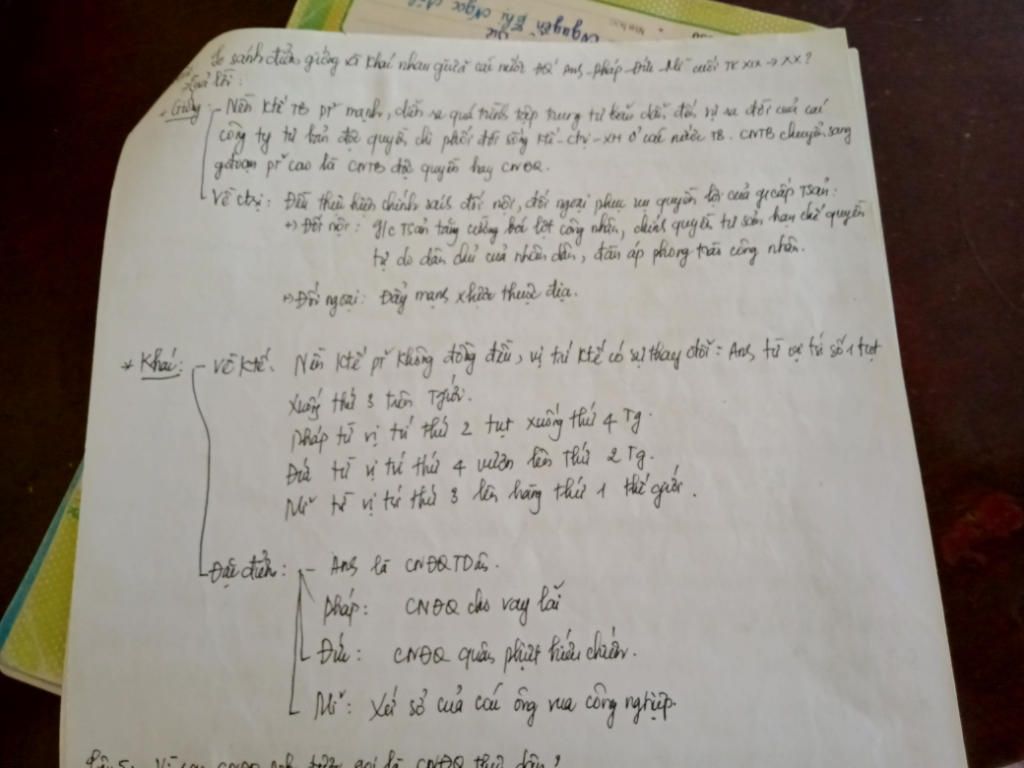 Nguyễn Thị Ngọc
So sánh điểm giống và khác nhau giữa các nước ĐQ Anh-Pháp-Đức-Mĩ cuối TK XIX → XX?
Trả lời:
* Giống - Nền Ktế TB ptr mạnh, diễn ra quá trình tập trung tư bản dẫn đến sự ra đời của các
công ty tư bản độc quyền chi phối đời sống Ktế-ctrị-XH ở các nước TB. CNTB chuyển sang
gđoạn ptr cao là CNTB độc quyền hay CNĐQ.
Về ctrị: Đều thi hiện chính sách đối nội, đối ngoại phục vụ quyền lợi của g/cấp Tsản:
+) Đối nội: g/c Tsản tăng cường bóc lột công nhân, chính quyền tư sản hạn chế quyền
tự do dân chủ của nhân dân, đàn áp phong trào công nhân.
+) Đối ngoại: Đẩy mạnh xlược thuộc địa.
* Khác: - Về Ktế. Nền Ktế ptr không đồng đều, vị trí Ktế có sự thay đổi = Anh từ vị trí số 1 tụt
xuống thứ 3 trên Tgiới.
Pháp từ vị trí thứ 2 tụt xuống thứ 4 Tg.
Đức từ vị trí thứ 4 vươn lên thứ 2 Tg.
Mĩ từ vị trí thứ 3 lên hàng thứ 1 thế giới.
Đặc điểm: - Anh là CNĐQ TDân.
Pháp: CNĐQ cho vay lãi
Đức: CNĐQ quân phiệt hiếu chiến.
Mĩ: Xứ sở của các ông vua công nghiệp.
Câu 5: Vì sao CNĐQ Anh được gọi là CNĐQ thực dân?